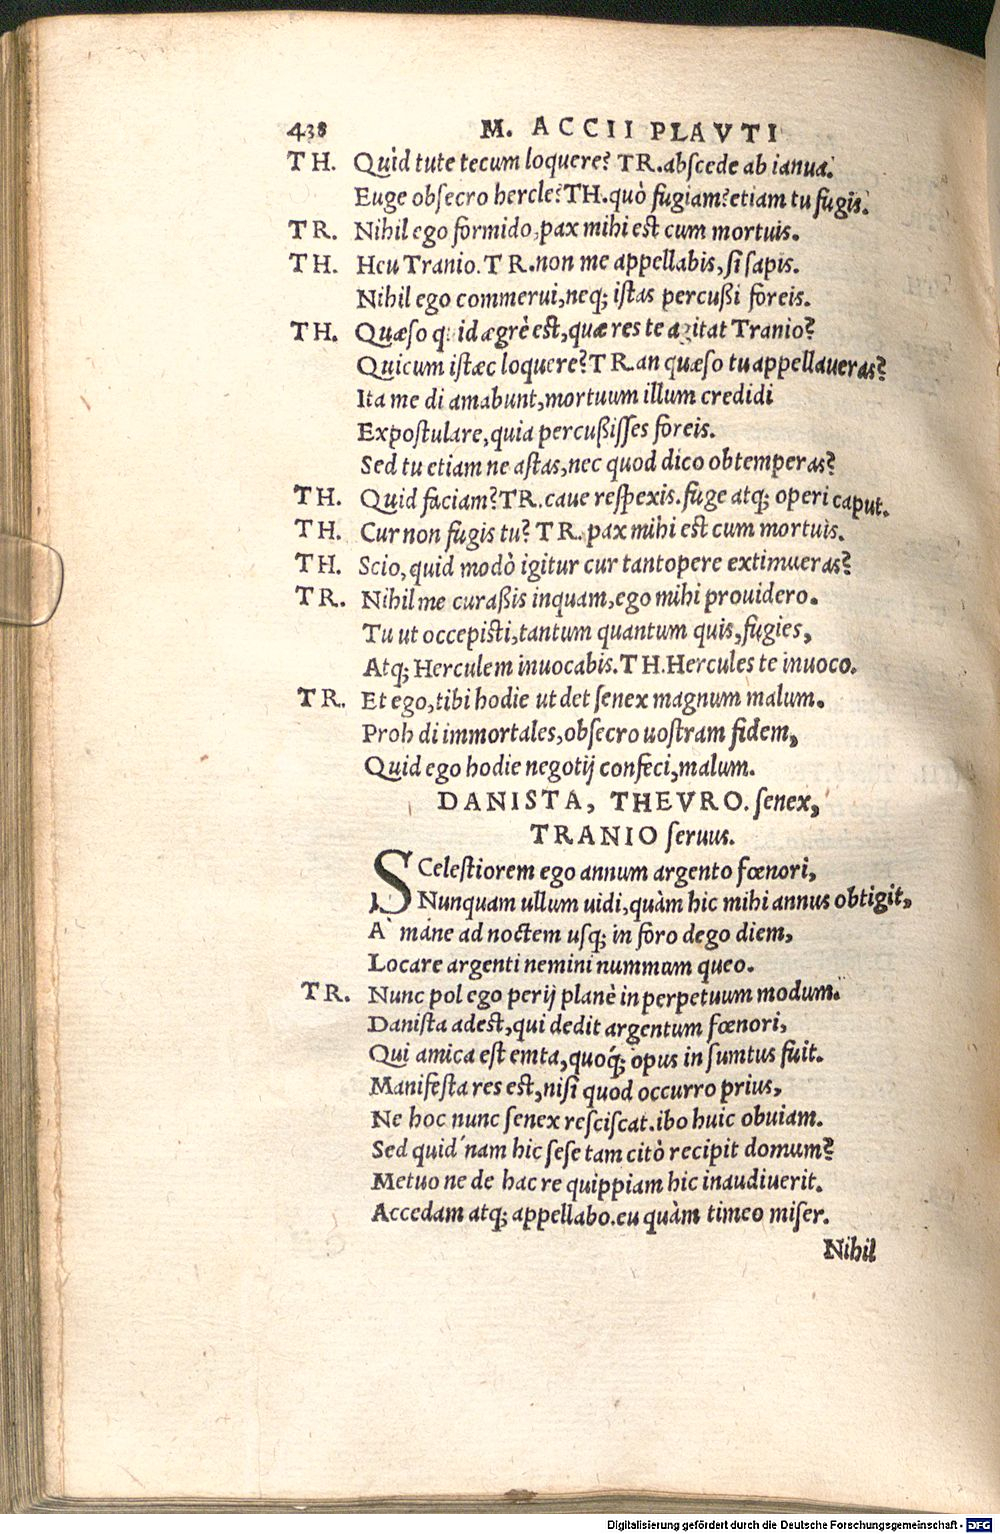 438 M. ACCII PLAVTI
TH. Quid tute tecum loquere? TR. abscede ab ianua.
Euge obsecro hercle? TH. quò fugiam? etiam tu fugis.
TR. Nihil ego formido, pax mihi est cum mortuis.
TH. Heu Tranio. TR. non me appellabis, si sapis.
Nihil ego commerui, neq; istas percußi foreis.
TH. Quæso quid ægrè est, quæ res te agitat Tranio?
Quicum istæc loquere? TR. an quæso tu appellaueras?
Ita me di amabunt, mortuum illum credidi
Expostulare, quia percußisses foreis.
Sed tu etiam ne astas, nec quod dico obtemperas?
TH. Quid faciam? TR. caue respexis. fuge atq; operi caput.
TH. Cur non fugis tu? TR. pax mihi est cum mortuis.
TH. Scio, quid modò igitur cur tantopere extimueras?
TR. Nihil me curaßis inquam, ego mihi prouidero.
Tu ut occepisti, tantum quantum quis, fugies,
Atq; Herculem inuocabis. TH. Hercules te inuoco.
TR. Et ego, tibi hodie ut det senex magnum malum.
Proh di immortales, obsecro uostram fidem,
Quid ego hodie negotij confeci, malum.
DANISTA, THEVRO. senex,
TRANIO seruus.
SCelestiorem ego annum argento fœnori,
Nunquam ullum uidi, quàm hic mihi annus obtigit,
A' mane ad noctem usq; in foro dego diem,
Locare argenti nemini nummum queo.
TR. Nunc pol ego perij planè in perpetuum modum.
Danista adest, qui dedit argentum fœnori,
Qui amica est emta, quoq́; opus in sumtus fuit.
Manifesta res est, nisi quod occurro prius,
Ne hoc nunc senex resciscat. ibo huic obuiam.
Sed quid'nam hic sese tam citò recipit domum?
Metuo ne de hac re quippiam hic inaudiuerit.
Accedam atq; appellabo. eu quàm timeo miser.
Nihil
Digitalisierung gefördert durch die Deutsche Forschungsgemeinschaft - DFG